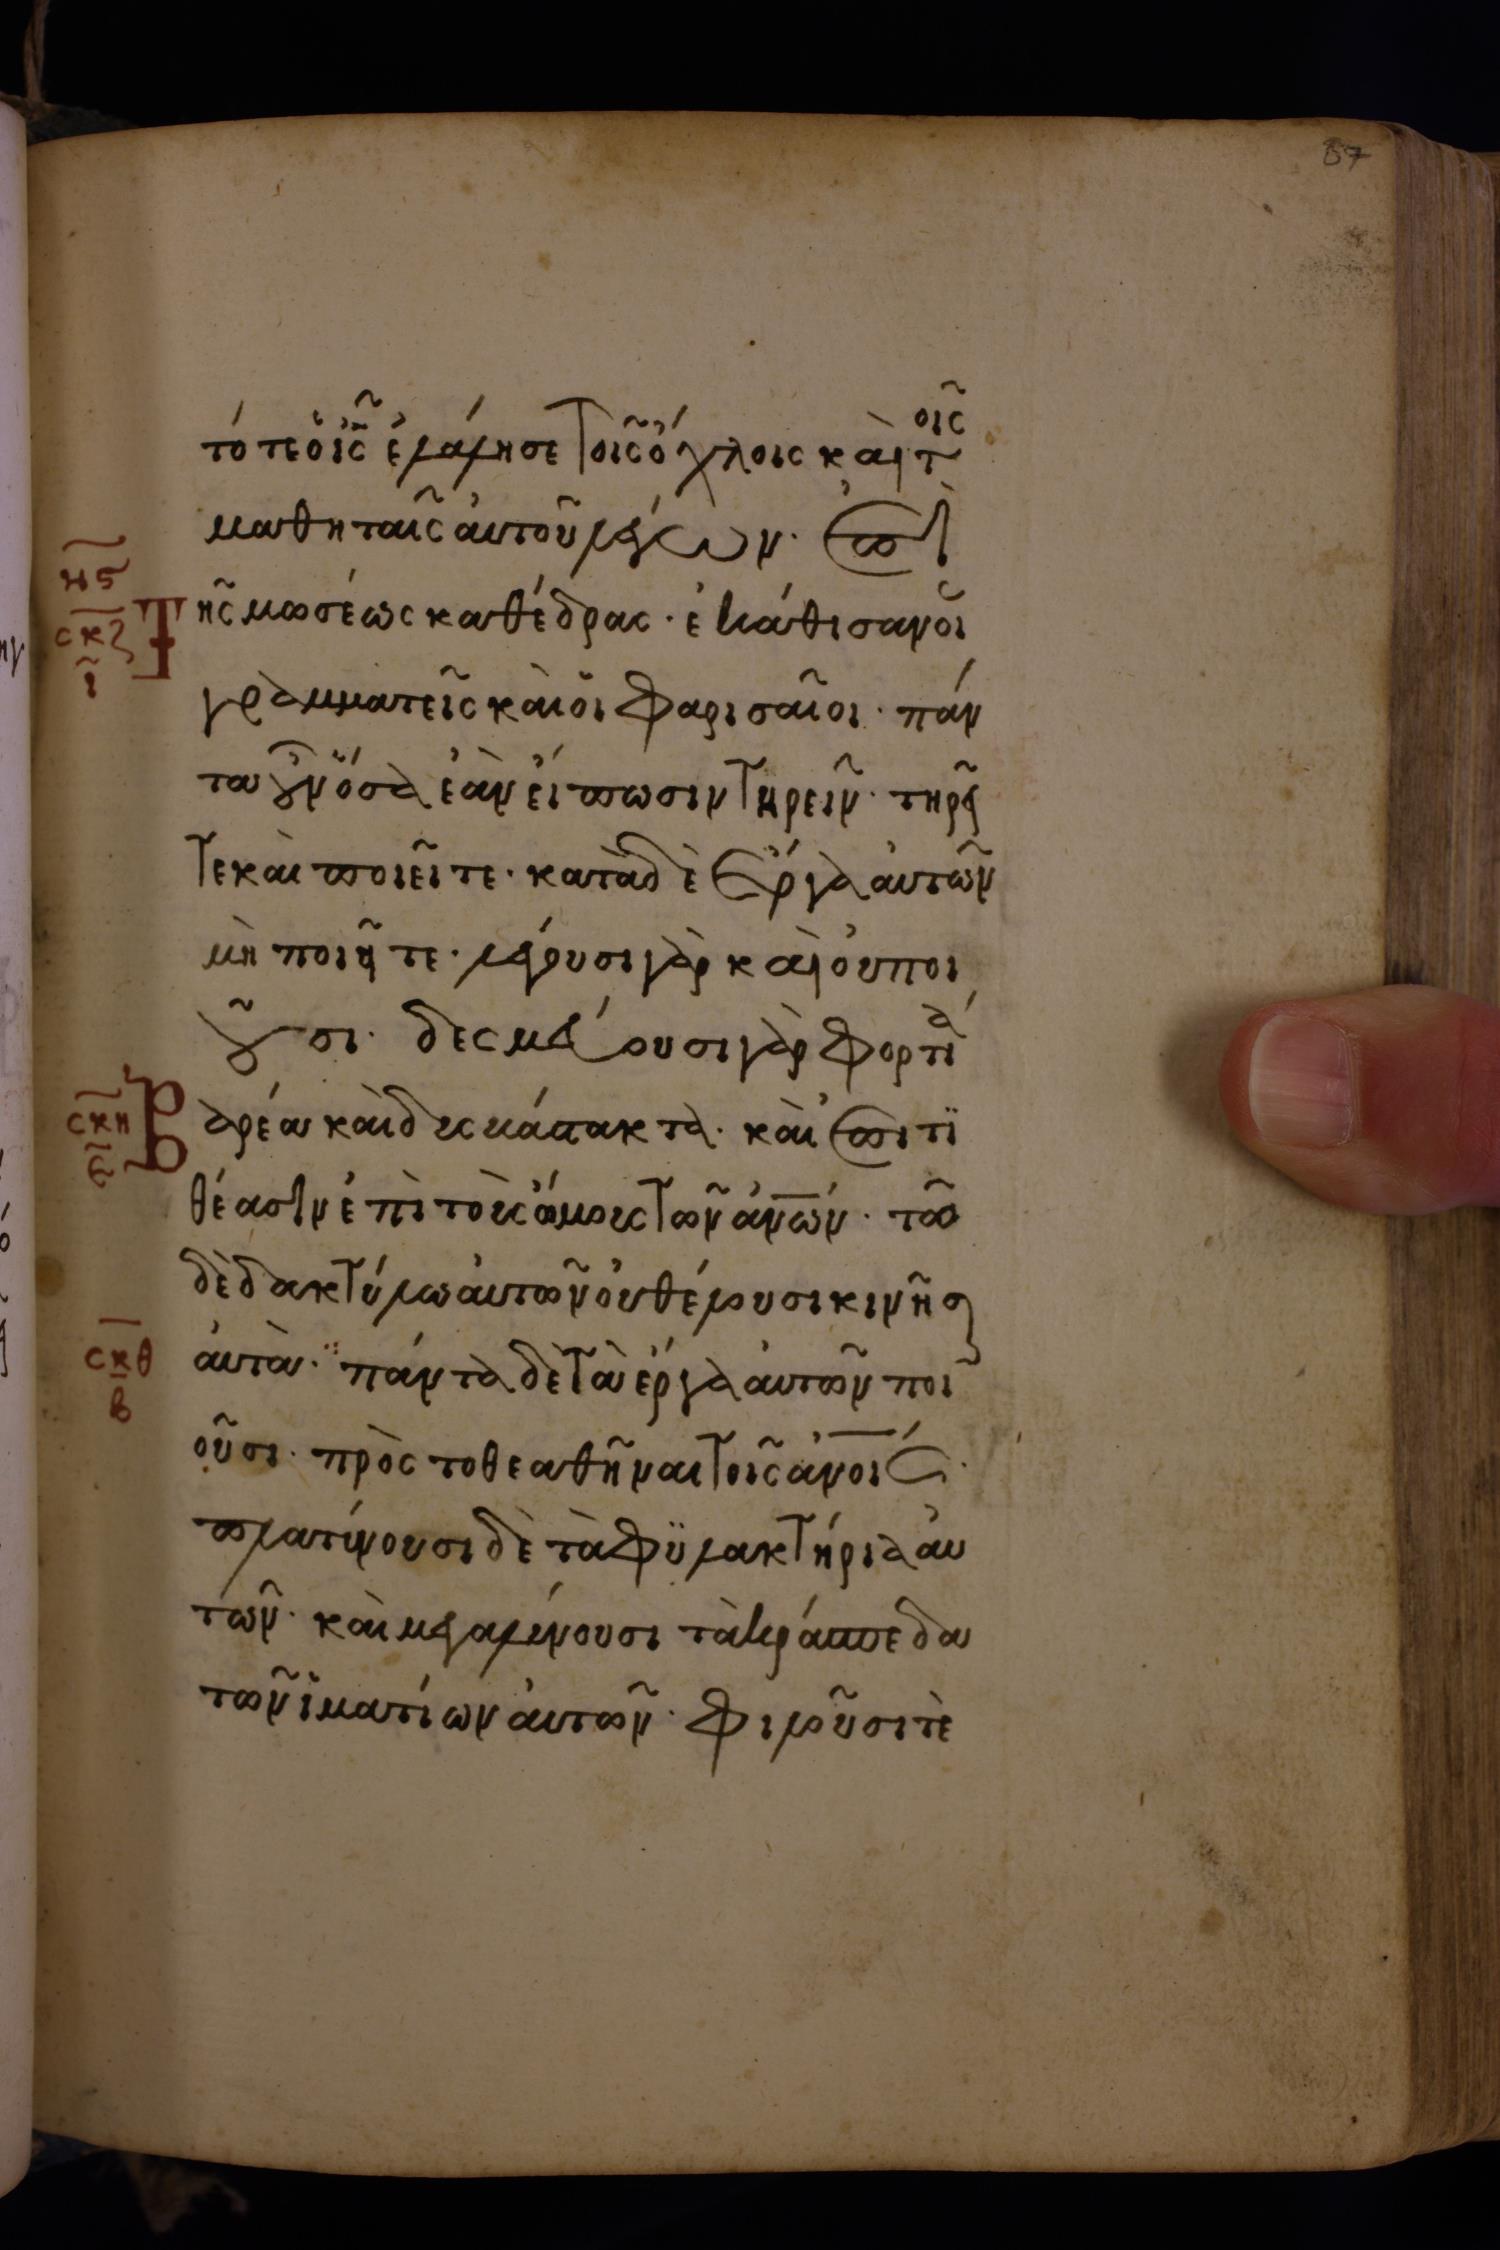 57
τότε ὁ ἰς ἐλάλησε τοῖς ὄχλοις καὶ τοῖς
μαθηταῖς αὐτοῦ λέγων· ἐπὶ
νς
σκζ
ι
Τῆς μωσέως καθέδρας· ἐκάθισαν οἱ
γραμματεῖς καὶ οἱ φαρισαῖοι· πάν
τα οὖν ὅσα ἐὰν εἴπωσιν τηρεῖν· τηρεῖ
τε καὶ ποιεῖτε· κατὰ δὲ ἔργα αὐτῶν
μὴ ποιῆτε· λέγουσι γὰρ καὶ οὐ ποι
οῦσι· δεσμεύουσι γὰρ φορτία
σκη
ε
Βαρέα καὶ δυσβάστακτα· καὶ ἐπιτι
θέασιν ἐπὶ τοὺς ὤμους τῶν ἀνων· τῶ
δὲ δακτύλω αὐτῶν οὐ θέλουσι κινῆσαι
σκθ
β
αὐτά· πάντα δὲ τὰ ἔργα αὐτῶν ποι
οῦσι· πρὸς τὸ θεαθῆναι τοῖς ἀνοις·
πλατύνουσι δὲ τὰ φϋλακτήρια αὐ
τῶν· καὶ μεγαλύνουσι τὰ κράσπεδα
τῶν ἱματίων αὐτῶν· φιλοῦσι τὲ